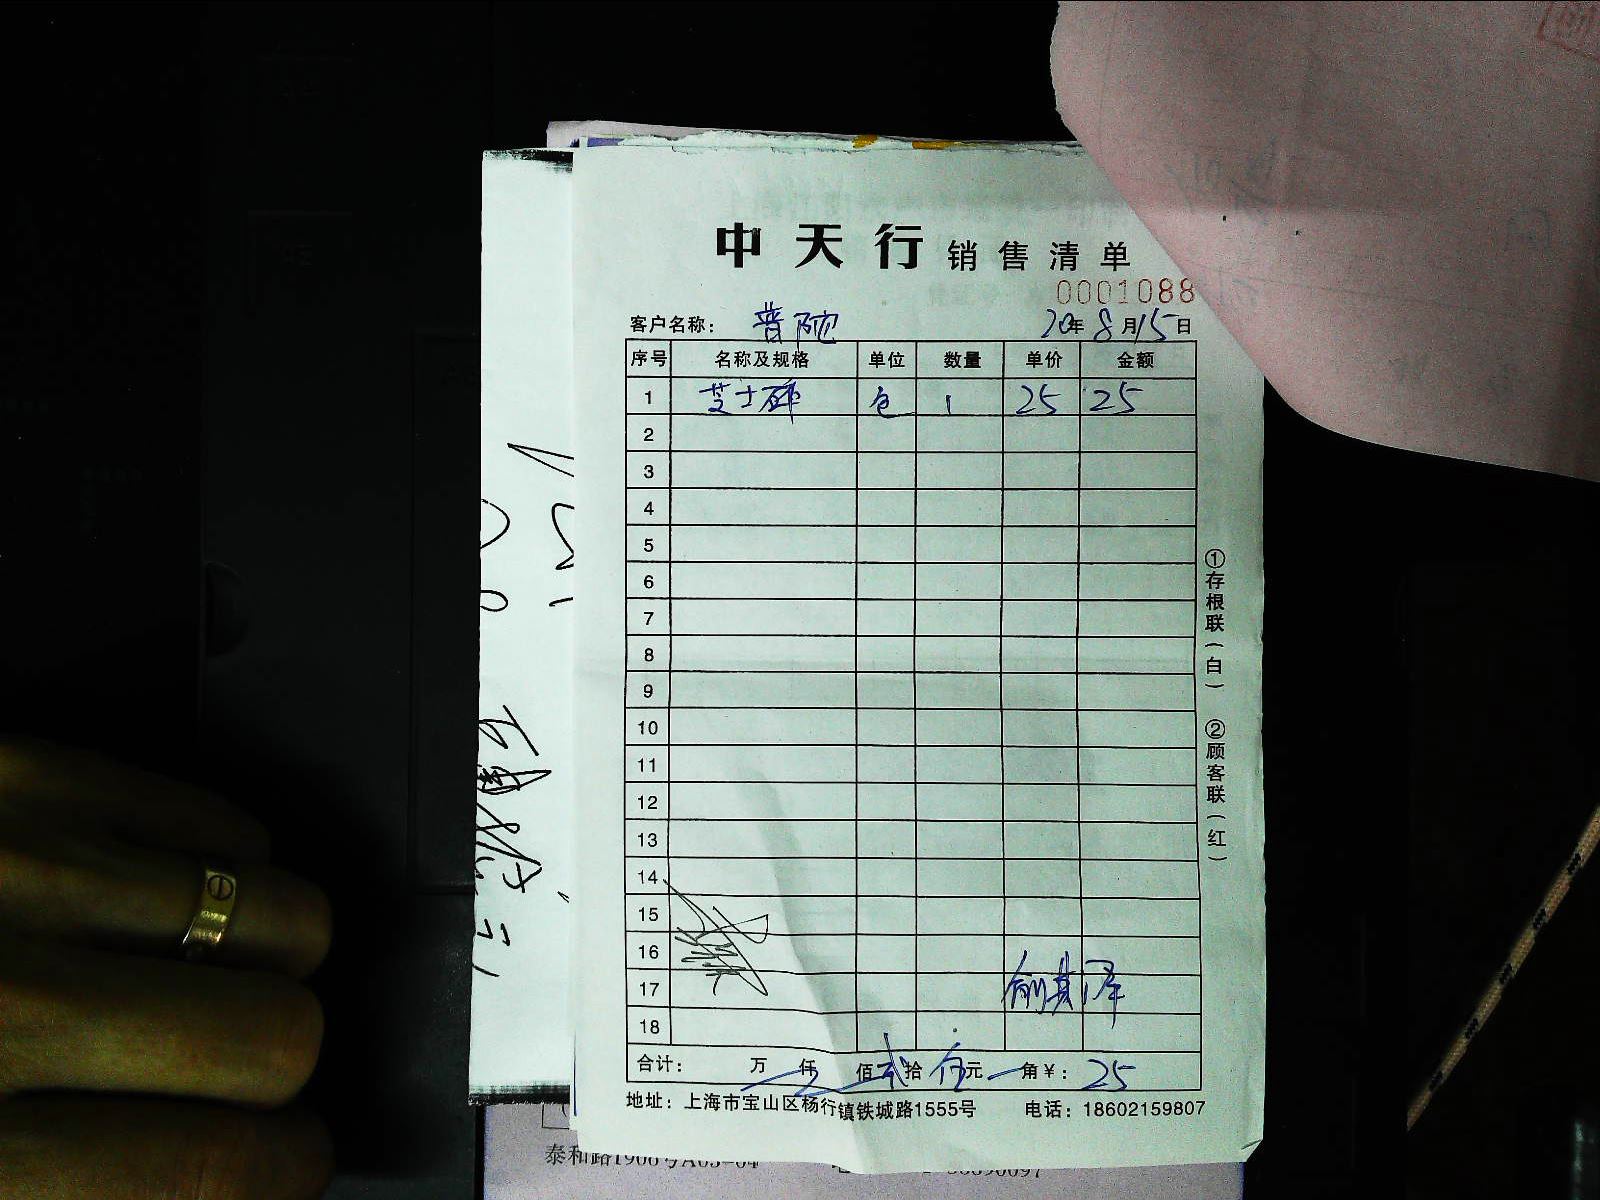 中天行 销售清单
0001088
客户名称: 普陀 20年8月15日
序号 名称及规格 单位 数量 单价 金额
1 芝士碎 包 1 25 25
2
3
4
5
6
7
8
9
10
11
12
13
14
15
16
17
俞其泽
18
合计: 万 仟 佰 贰拾 伍元 角¥: 25
地址: 上海市宝山区杨行镇铁城路1555号 电话: 18602159807
①存根联(白) ②顾客联(红)